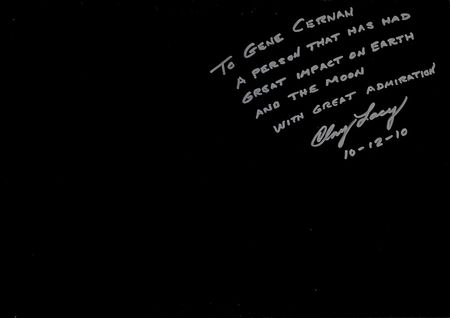 TO GENE CERNAN
A PERSON THAT HAS HAD
GREAT IMPACT ON EARTH
AND THE MOON
WITH GREAT ADMIRATION
Clay Lacy
10-12-10